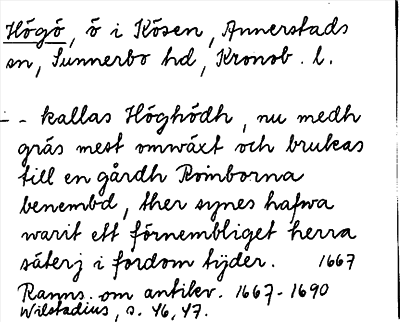 Högö, ö i Kösen, Annerstads
sn, Sunnerbo hd, Kronob. l.
- - kallas Höghödh, nu medh
gräs mest omwäxt och brukas
till en gårdh Romborna
benembd, ther synes hafwa
warit ett förnembliget herra
säterj i fordom tijder. 1667
Ranns. om antikv. 1667-1690
Wilstadius, s. 46, 47.